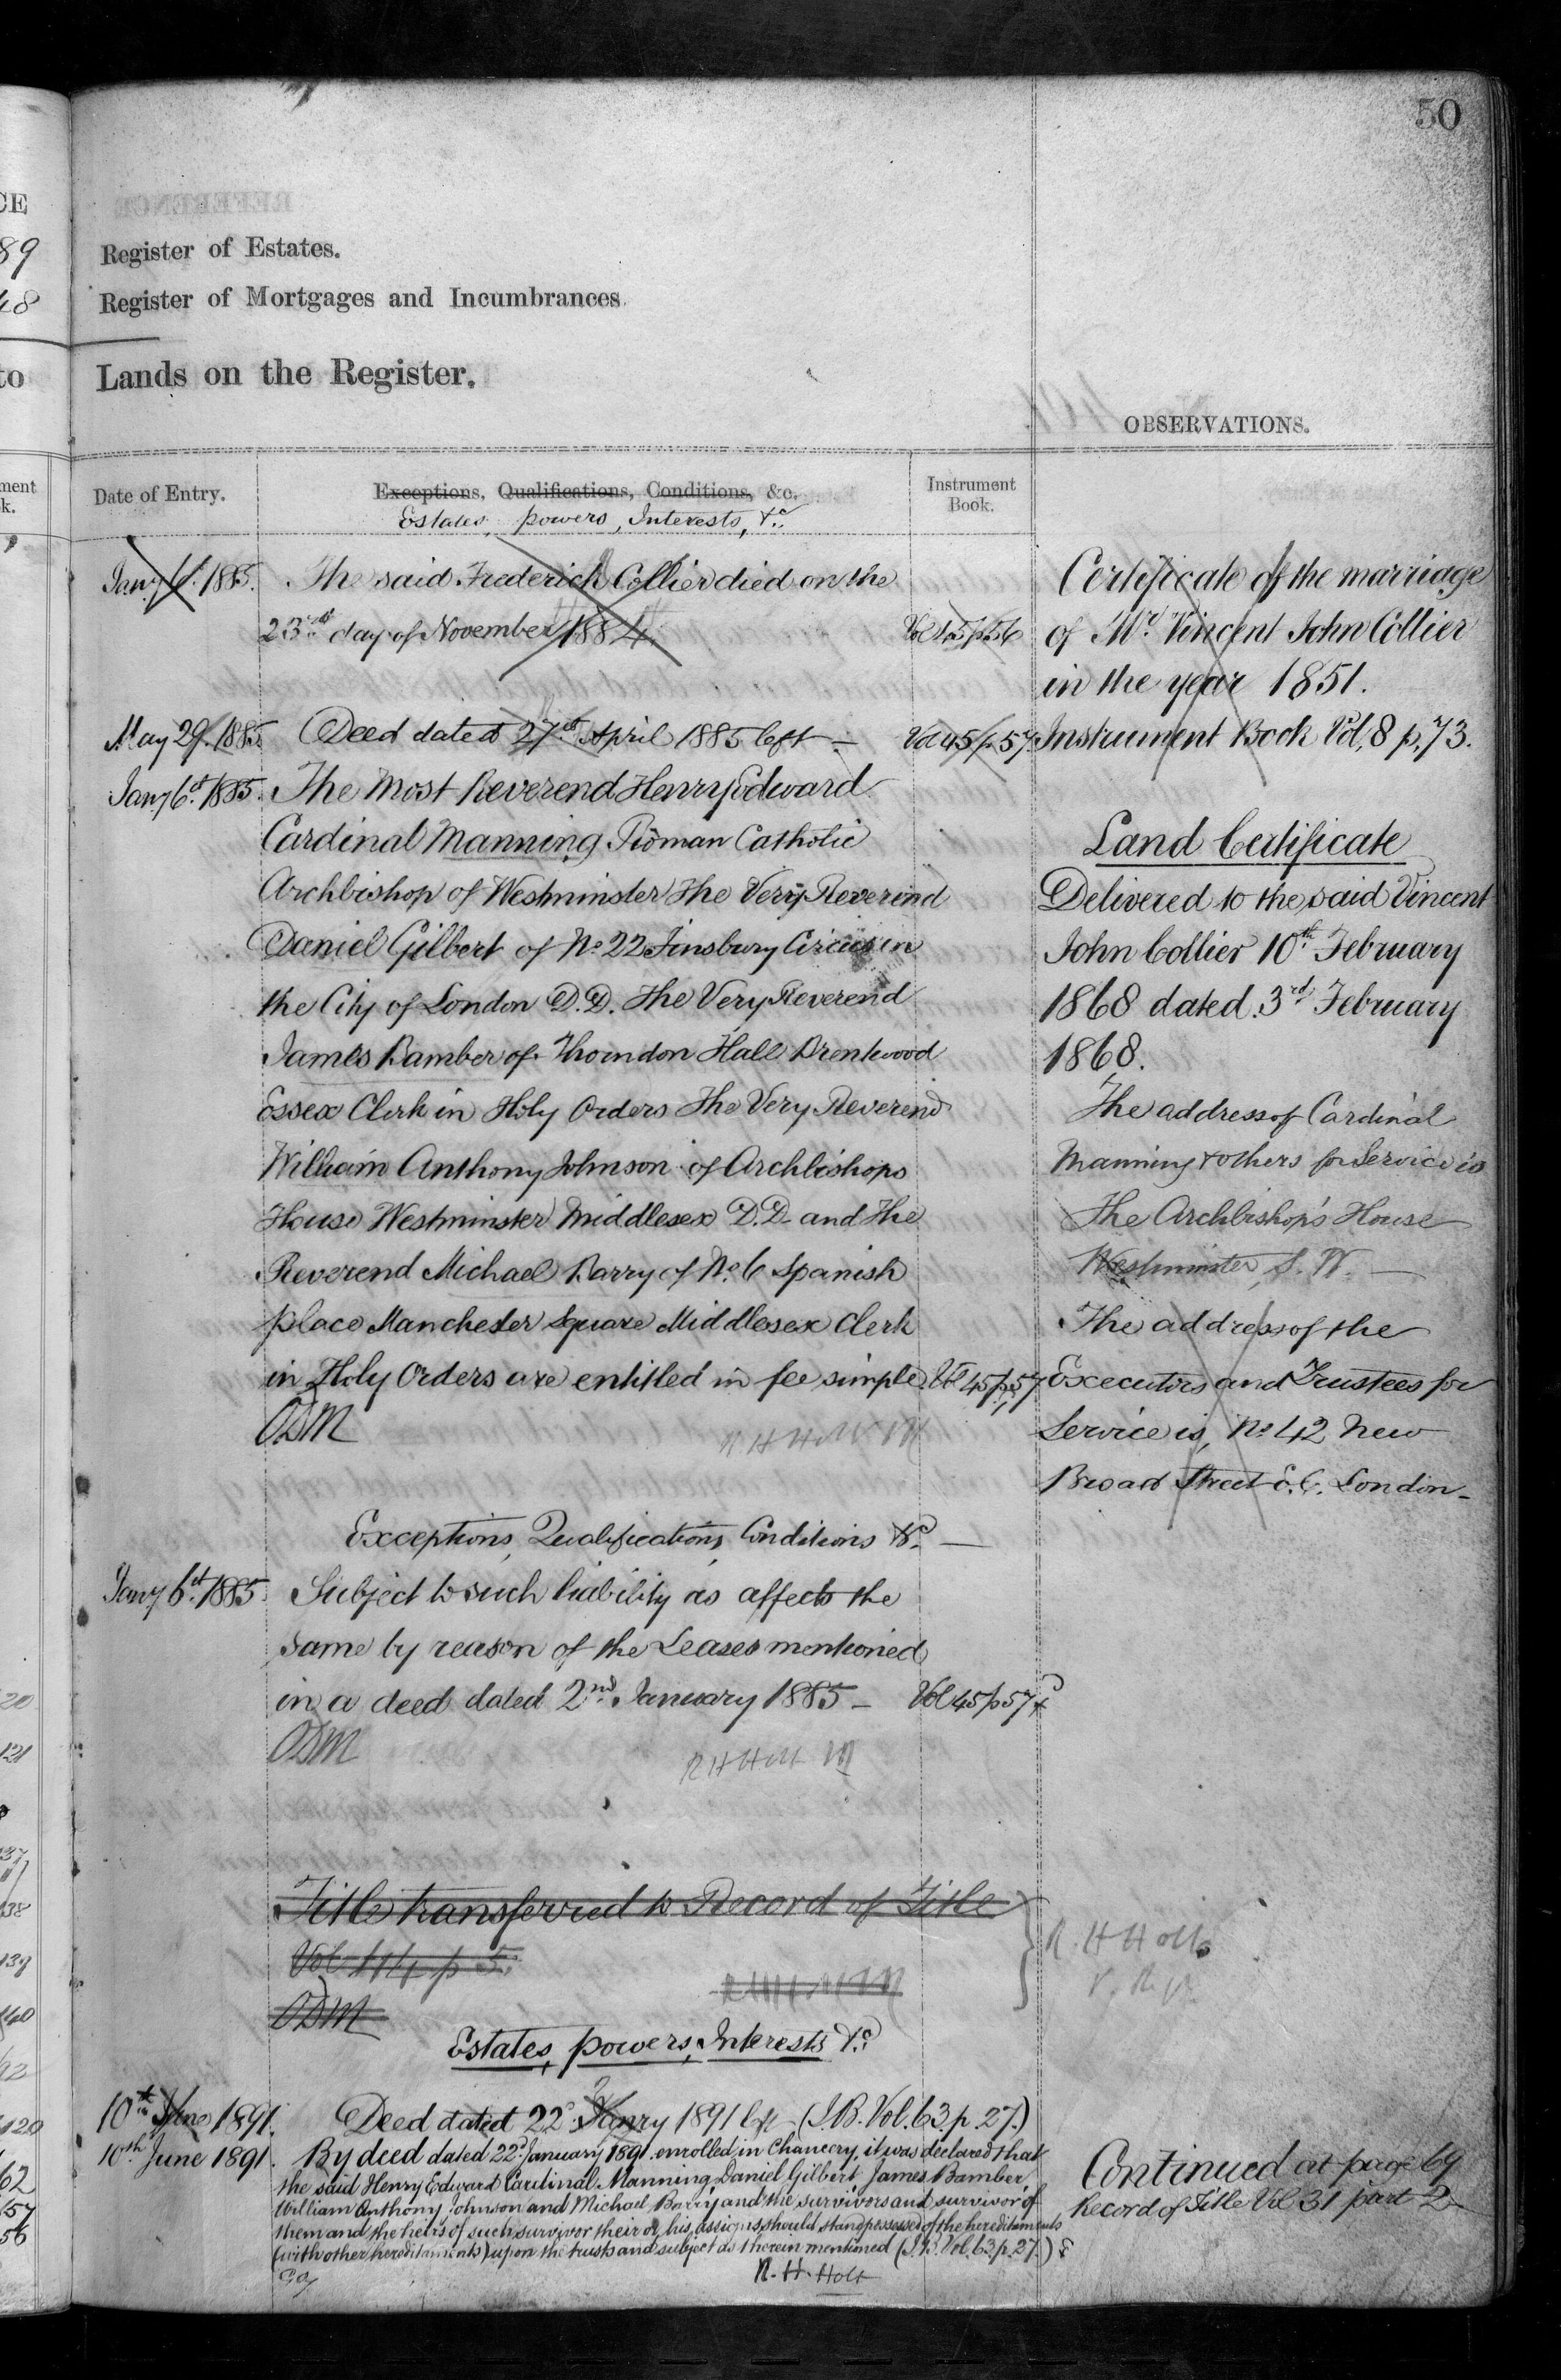 50
Register of Estates.
Register of Mortgages and Incumbrances.
Lands on the Register.
OBSERVATIONS.
Date of Entry.
Exceptions, Qualifications, Conditions, &c.
Estates, powers, Interests, &c.
Instrument
Book.
Jany 6th 1885. The said Frederick Collier died on the
23rd day of November 1884. Vol 45 p 56
May 29. 1885 Deed dated 27th April 1885 left — Vol 45 p 57
Jany 6th 1885. The Most Reverend Henry Edward
Cardinal Manning Roman Catholic
Archbishop of Westminster The Very Reverend
Daniel Gilbert of No. 22 Finsbury Circus in
the City of London D.D. The Very Reverend
James Bamber of Thorndon Hall Brentwood
Essex Clerk in Holy Orders The Very Reverend
William Anthony Johnson of Archbishops
House Westminster Middlesex D.D. and The
Reverend Michael Barry of No. 6 Spanish
place Manchester Square Middlesex Clerk
in Holy Orders are entitled in fee simple. Vol 45 p 57
Exceptions, Qualifications, Conditions &c. —
Jany 6th 1885. Subject to such liability as affects the
same by reason of the Leases mentioned
in a deed dated 2nd January 1885 — Vol 45 p 57
R H Holt
Title transferred to Record of Title
Vol p 5.
R. H Holt
Estates, powers, Interests &c.
10th June 1891. Deed dated 22d Janry 1891 left — (I.B. Vol. 63 p. 27.)
10th June 1891. By deed dated 22d January 1891 enrolled in Chancery, it was declared that
the said Henry Edward Cardinal Manning Daniel Gilbert James Bamber,
William Anthony Johnson and Michael Barry and the survivors and survivor of
them and the heirs of such survivor their or his assigns should stand possessed of the hereditaments
(with other hereditaments) upon the trusts and subject as therein mentioned (I.B. Vol. 63 p. 27.)
R. H. Holt
Certificate of the marriage
of Mr. Vincent John Collier
in the year 1851.
Instrument Book Vol. 8 p. 73.
Land Certificate
Delivered to the said Vincent
John Collier 10th February
1868 dated 3rd February
1868.
The address of Cardinal
Manning & others for Service is
The Archbishop's House
Westminster, S. W. —
The address of the
Executors and Trustees for
Service is, No. 42 New
Broad Street E.C. London —
Continued at page 69
Record of Title Vol 31 part 2